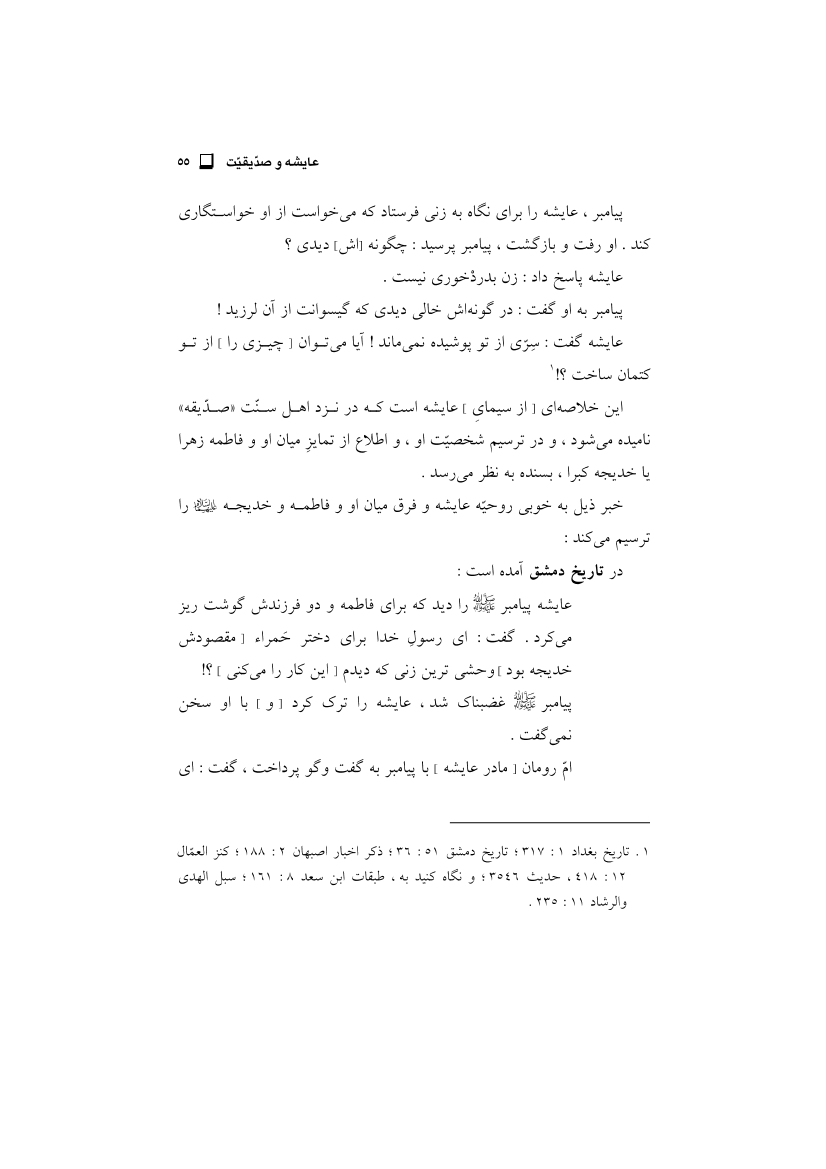 عایشه و صدّیقیّت ❏ ٥٥
پیامبر ، عایشه را برای نگاه به زنی فرستاد که می‌خواست از او خواستگاری
کند . او رفت و بازگشت ، پیامبر پرسید : چگونه [اش] دیدی ؟
عایشه پاسخ داد : زن بدردْخوری نیست .
پیامبر به او گفت : در گونه‌اش خالی دیدی که گیسوانت از آن لرزید !
عایشه گفت : سِرّی از تو پوشیده نمی‌ماند ! آیا می‌توان [ چیزی را ] از تو
کتمان ساخت ؟!١
این خلاصه‌ای [ از سیمایِ ] عایشه است که در نزد اهل سنّت «صدّیقه»
نامیده می‌شود ، و در ترسیم شخصیّت او ، و اطلاع از تمایزِ میان او و فاطمه زهرا
یا خدیجه کبرا ، بسنده به نظر می‌رسد .
خبر ذیل به خوبی روحیّه عایشه و فرق میان او و فاطمه و خدیجه را
ترسیم می‌کند :
در تاریخ دمشق آمده است :
عایشه پیامبر ﷺ را دید که برای فاطمه و دو فرزندش گوشت ریز
می‌کرد . گفت : ای رسولِ خدا برای دختر حَمراء [ مقصودش
خدیجه بود ] وحشی ترین زنی که دیدم [ این کار را می‌کنی ] ؟!
پیامبر ﷺ غضبناک شد ، عایشه را ترک کرد [ و ] با او سخن
نمی‌گفت .
امّ رومان [ مادر عایشه ] با پیامبر به گفت وگو پرداخت ، گفت : ای
١ . تاریخ بغداد ١ : ٣١٧ ؛ تاریخ دمشق ٥١ : ٣٦ ؛ ذکر اخبار اصبهان ٢ : ١٨٨ ؛ کنز العمّال
١٢ : ٤١٨ ، حدیث ٣٥٤٦ ؛ و نگاه کنید به ، طبقات ابن سعد ٨ : ١٦١ ؛ سبل الهدی
والرشاد ١١ : ٢٣٥ .